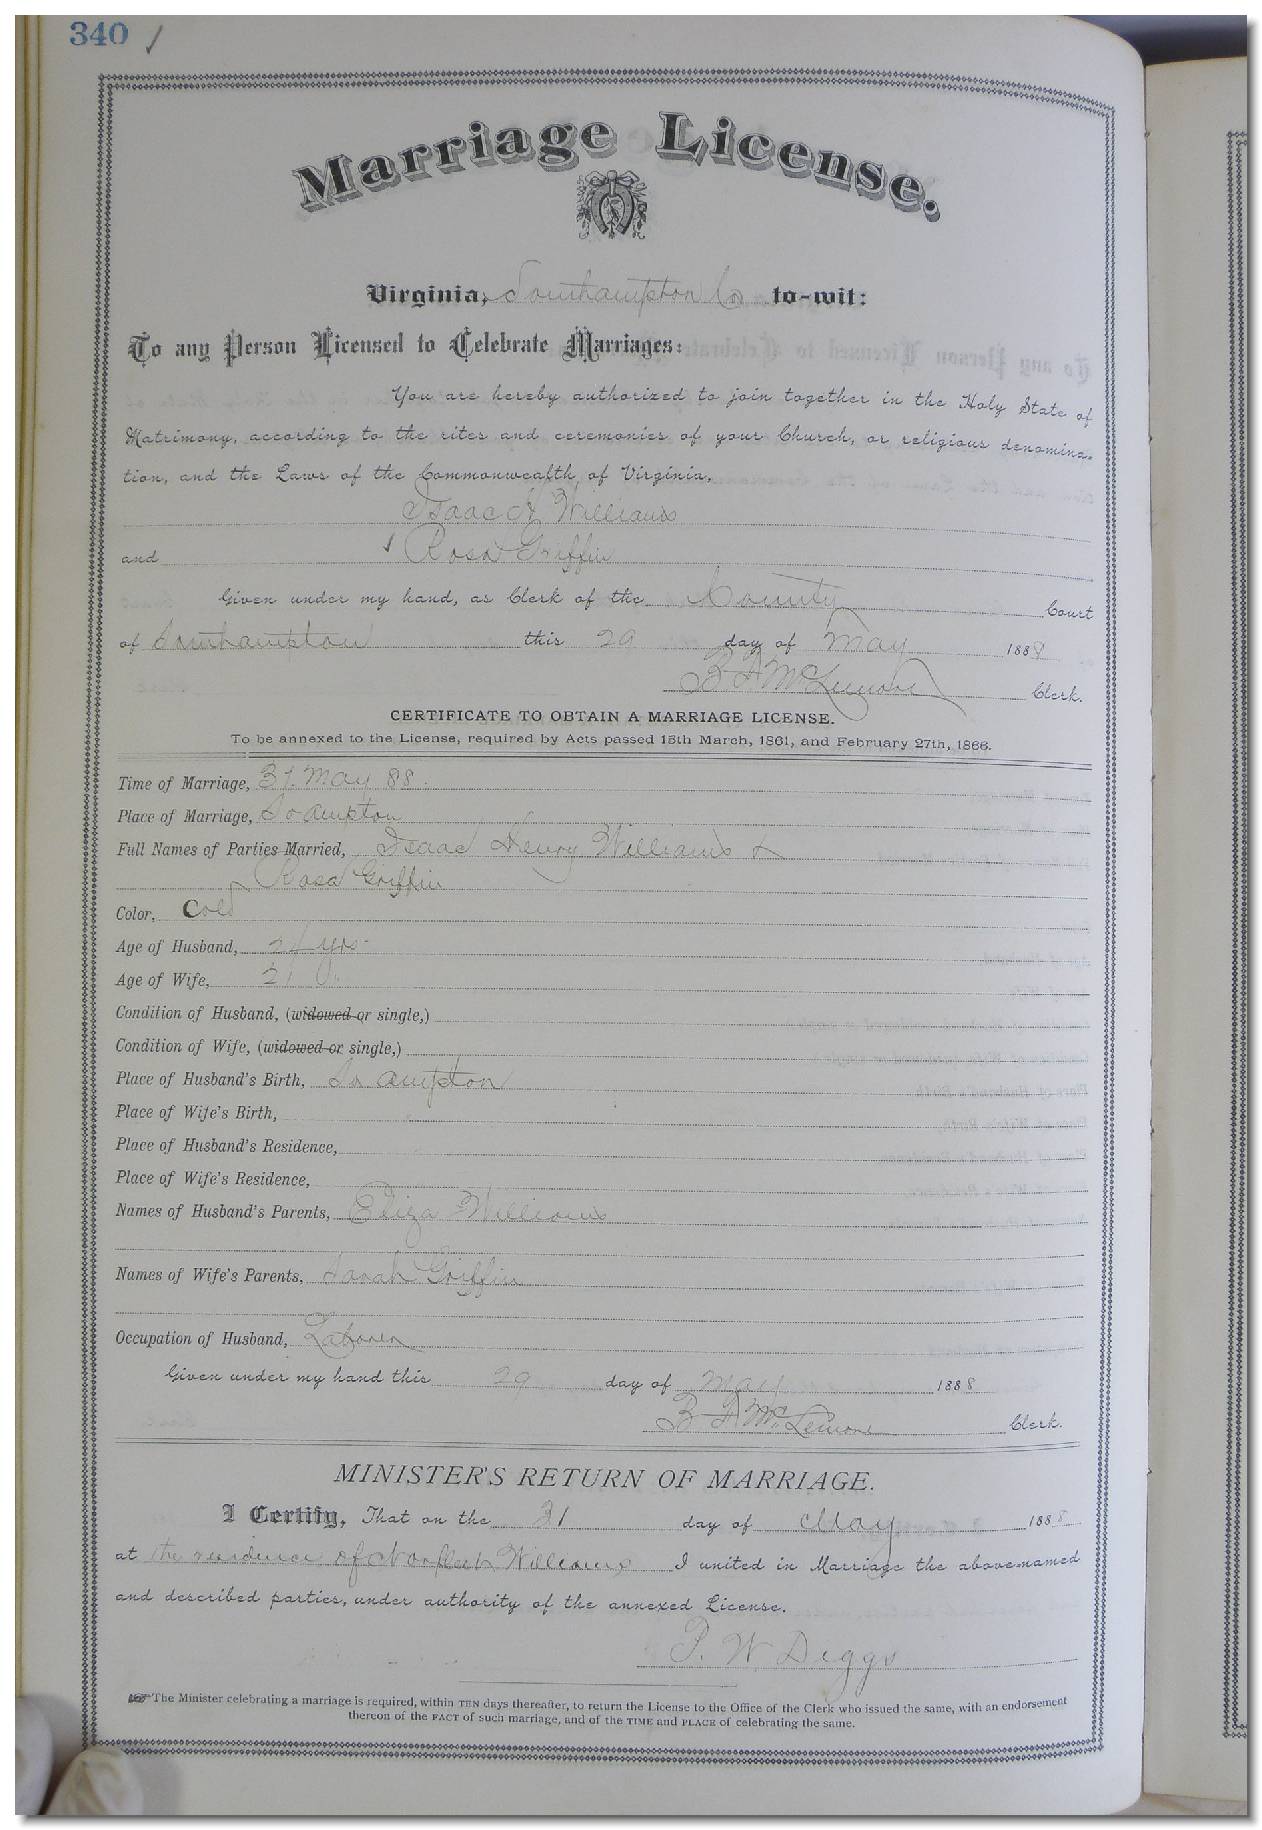 340
Marriage License.
Virginia, Southampton Co to-wit:
To any Person Licensed to Celebrate Marriages:
You are hereby authorized to join together in the Holy State of
Matrimony, according to the rites and ceremonies of your Church, or religious denomina-
tion, and the Laws of the Commonwealth of Virginia,
Isaac H Williams
and Rosa Griffin
Given under my hand, as Clerk of the County Court
of Southampton this 29 day of May 1888
B F McLemore Clerk.
CERTIFICATE TO OBTAIN A MARRIAGE LICENSE.
To be annexed to the License, required by Acts passed 15th March, 1861, and February 27th, 1866.
Time of Marriage, 31. May 88.
Place of Marriage, So ampton
Full Names of Parties Married, Isaac Henry Williams &
Rosa Griffin
Color, Cold
Age of Husband, 24 yrs
Age of Wife, 21
Condition of Husband, (widowed or single,)
Condition of Wife, (widowed or single,)
Place of Husband's Birth, So ampton
Place of Wife's Birth,
Place of Husband's Residence,
Place of Wife's Residence,
Names of Husband's Parents, Eliza Williams
Names of Wife's Parents, Sarah Griffin
Occupation of Husband, Laborer
Given under my hand this 29 day of May 1888
B F McLemore Clerk.
MINISTER'S RETURN OF MARRIAGE.
I Certify, That on the 31 day of May 1888
at the residence of Norfleet Williams I united in Marriage the above-named
and described parties, under authority of the annexed License.
P. W. Diggs
The Minister celebrating a marriage is required, within TEN days thereafter, to return the License to the Office of the Clerk who issued the same, with an endorsement
thereon of the FACT of such marriage, and of the TIME and PLACE of celebrating the same.